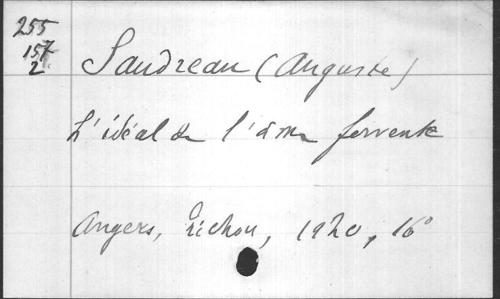 255
157
2
Saudreau (Auguste)
L'idéal de l'âme fervente
Angers, Richou, 1920, 16°